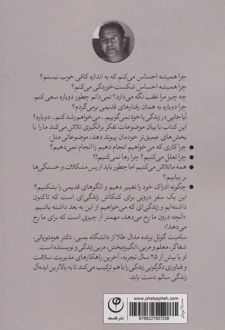 چرا همیشه احساس می‌کنم که به اندازه کافی خوب نیستم؟
چرا همیشه احساس شکست‌خوردگی می‌کنم؟
چه چیز مرا عقب نگه می‌دارد؟ نمی‌دانم چطور دوباره سعی کنم.
چرا دوباره به همان رفتارهای قدیمی برمی‌گردم؟
آیا جایی در زندگی با خود نمی‌گوییم... می‌خواهم رشد کنم... دوباره؟
این کتاب با بیان موضوعات تفکر برانگیزی تلاش می‌کند ما را با
بخش‌های عمیق‌تر خودمان پیوند دهد، موضوعاتی مثل:
چرا کاری که می‌خواهم انجام دهم را انجام نمی‌دهم؟
چرا تعلل می‌کنم؟ چرا رها نمی‌کنم؟
همه ما تلاش می‌کنیم اما چطور باید از پس مشکلات و خستگی‌ها
بر بیاییم؟
چگونه ادراک خود را تغییر دهیم و الگوهای قدیمی را بشکنیم؟
این یک سفر درونی برای کنکاش زندگی‌ای است که تاکنون
داشته‌ایم و زندگی‌ای که می‌خواهیم از این به بعد داشته باشیم.
«آنچه درون ما رخ می‌دهد، مهمتر از چیزی است که برای ما رخ
می‌دهد».
سامیت گوئل برنده مدال طلا از دانشگاه بمبئی، دکتر هومئوپاتی،
شفاگر، معلم و مربی، انگیزه‌بخش، مربی زندگی و نویسنده است.
او با بیش از ۲۵ سال تجربه، آخرین راهکارهای مدیریت سلامت
و فناوری دگرگونی زندگی را با هم ترکیب می‌کند تا به بالاترین ایده‌آل
زندگی سالم دست یابد.
www.phalsapheh.com
نشر فلسفه